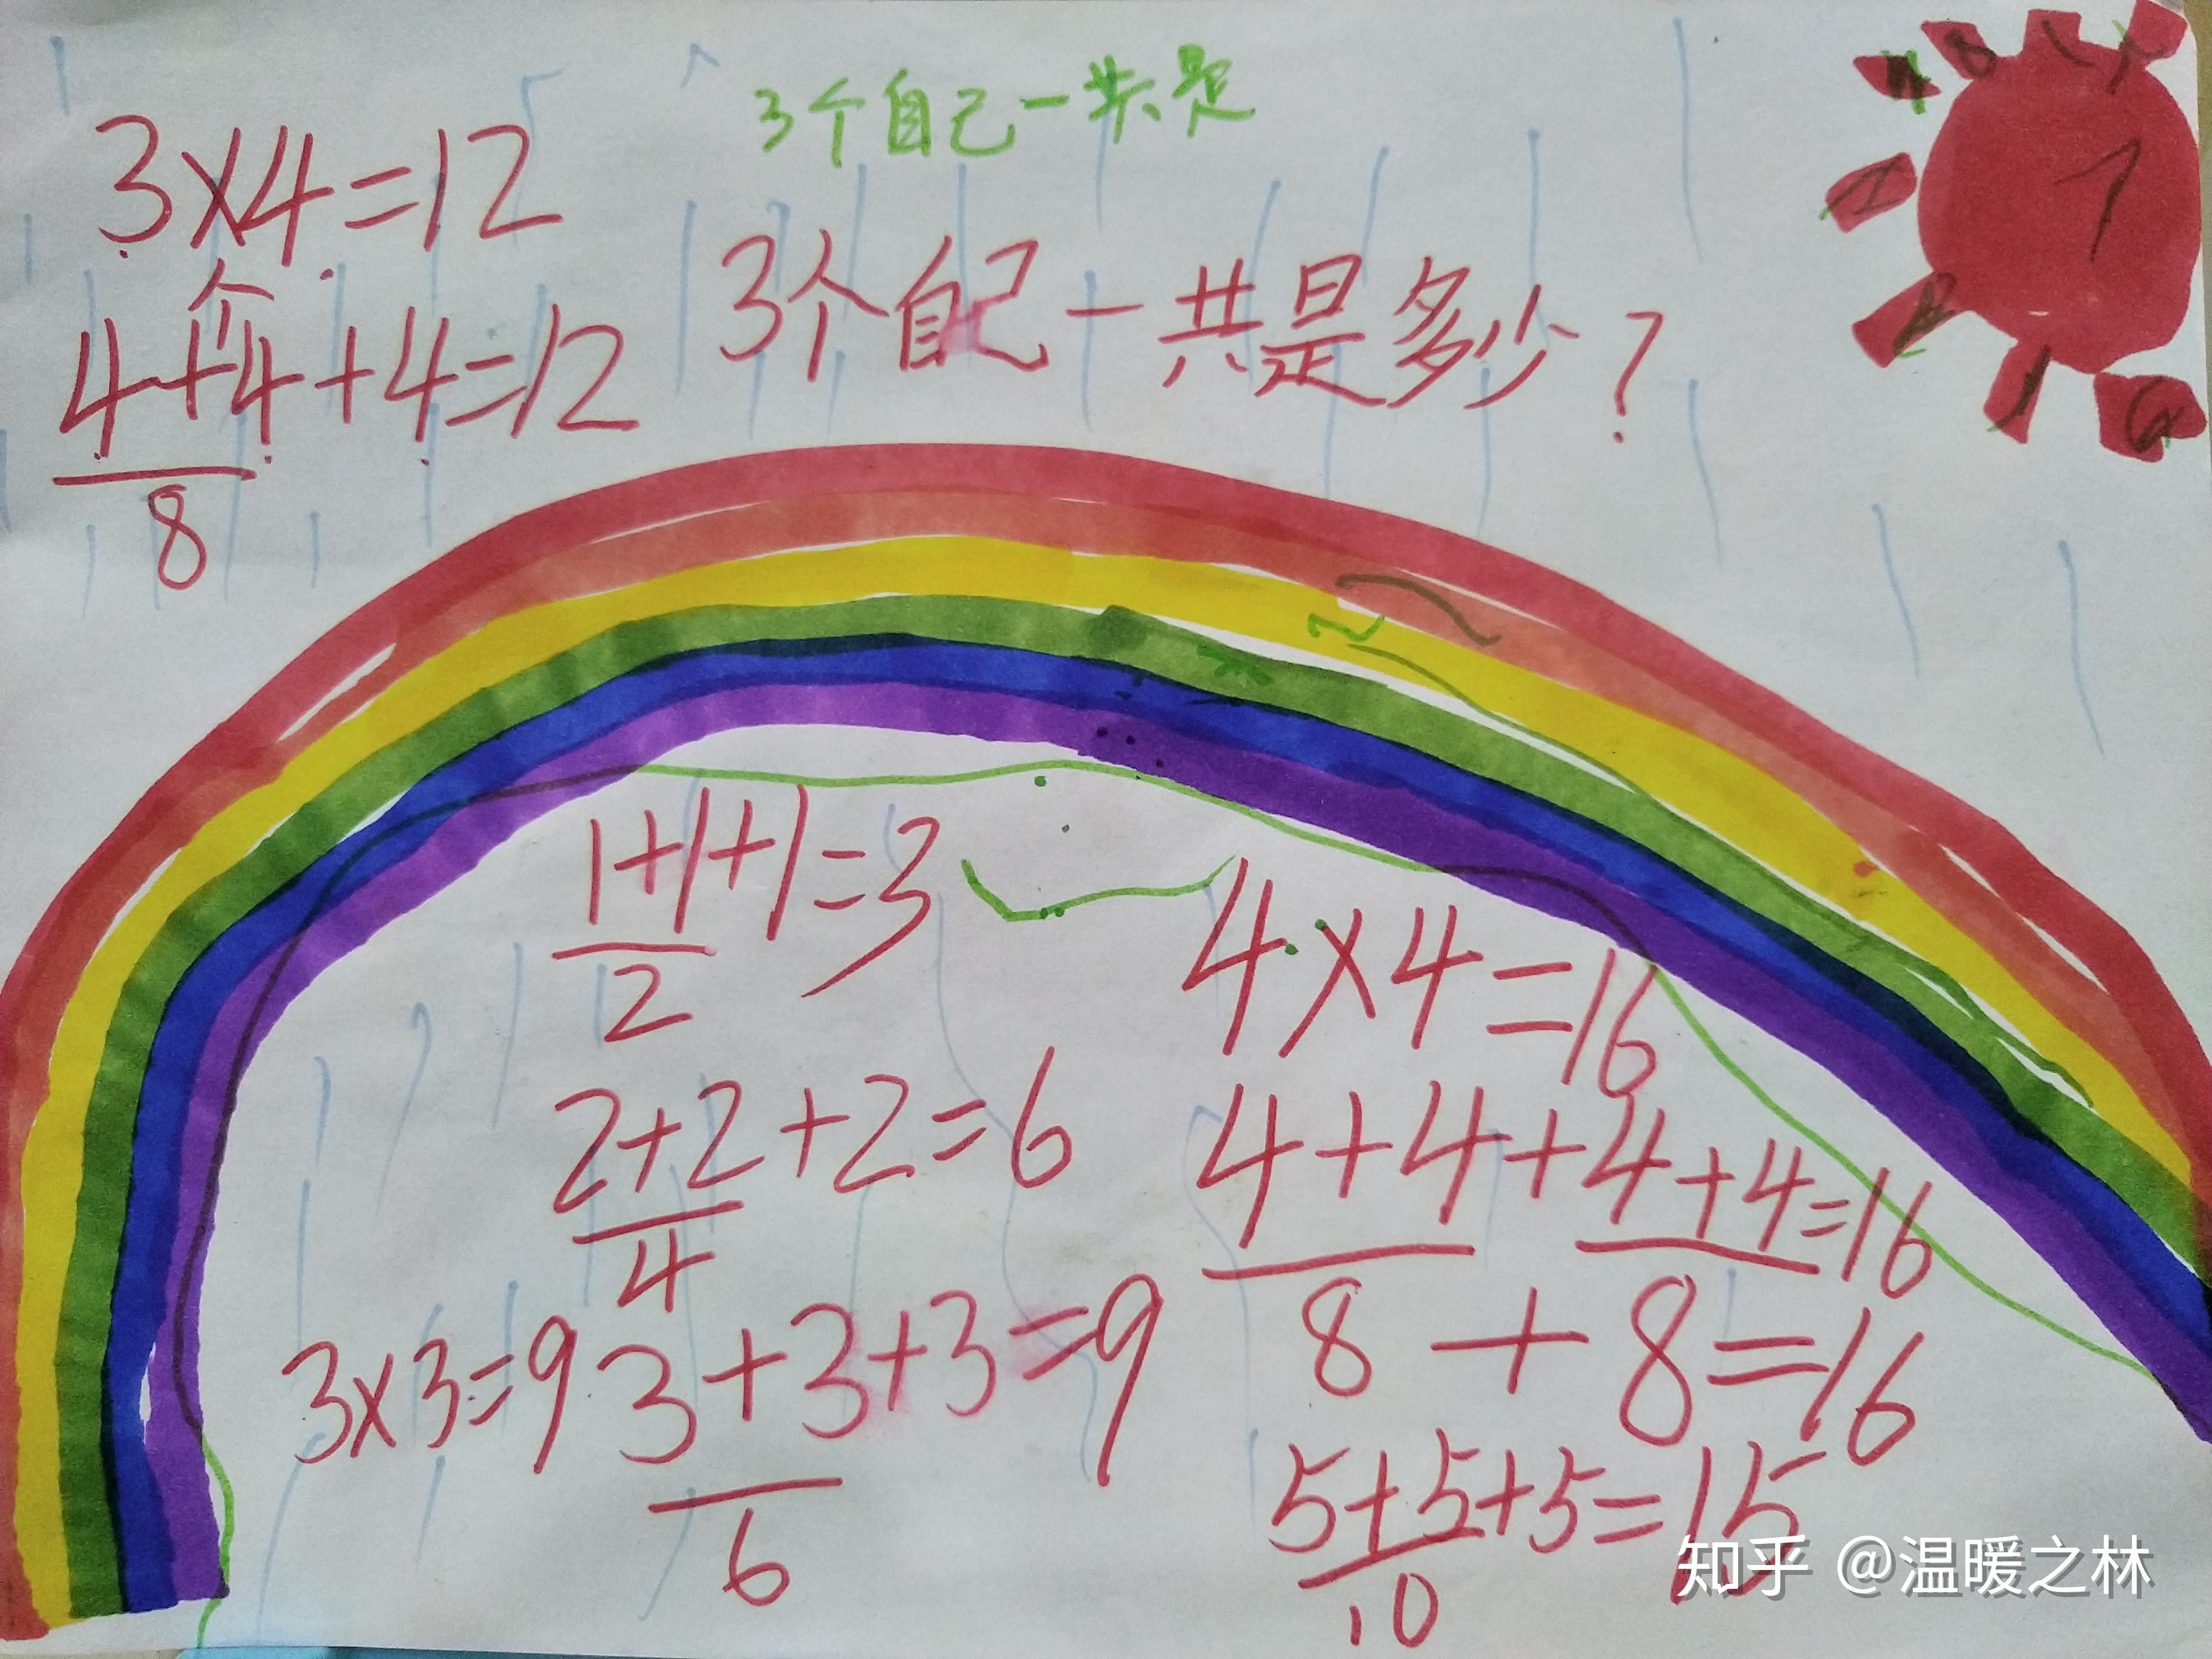 3个自己一共是
3×4=12
个
4+4+4=12
8
3个自己一共是多少?
1
1+1+1=3
2
2+2+2=6
4
3×3=9
3+3+3=9
6
4×4=16
4+4+4+4=16
8+8=16
5+5+5=15
10
知乎 @温暖之林